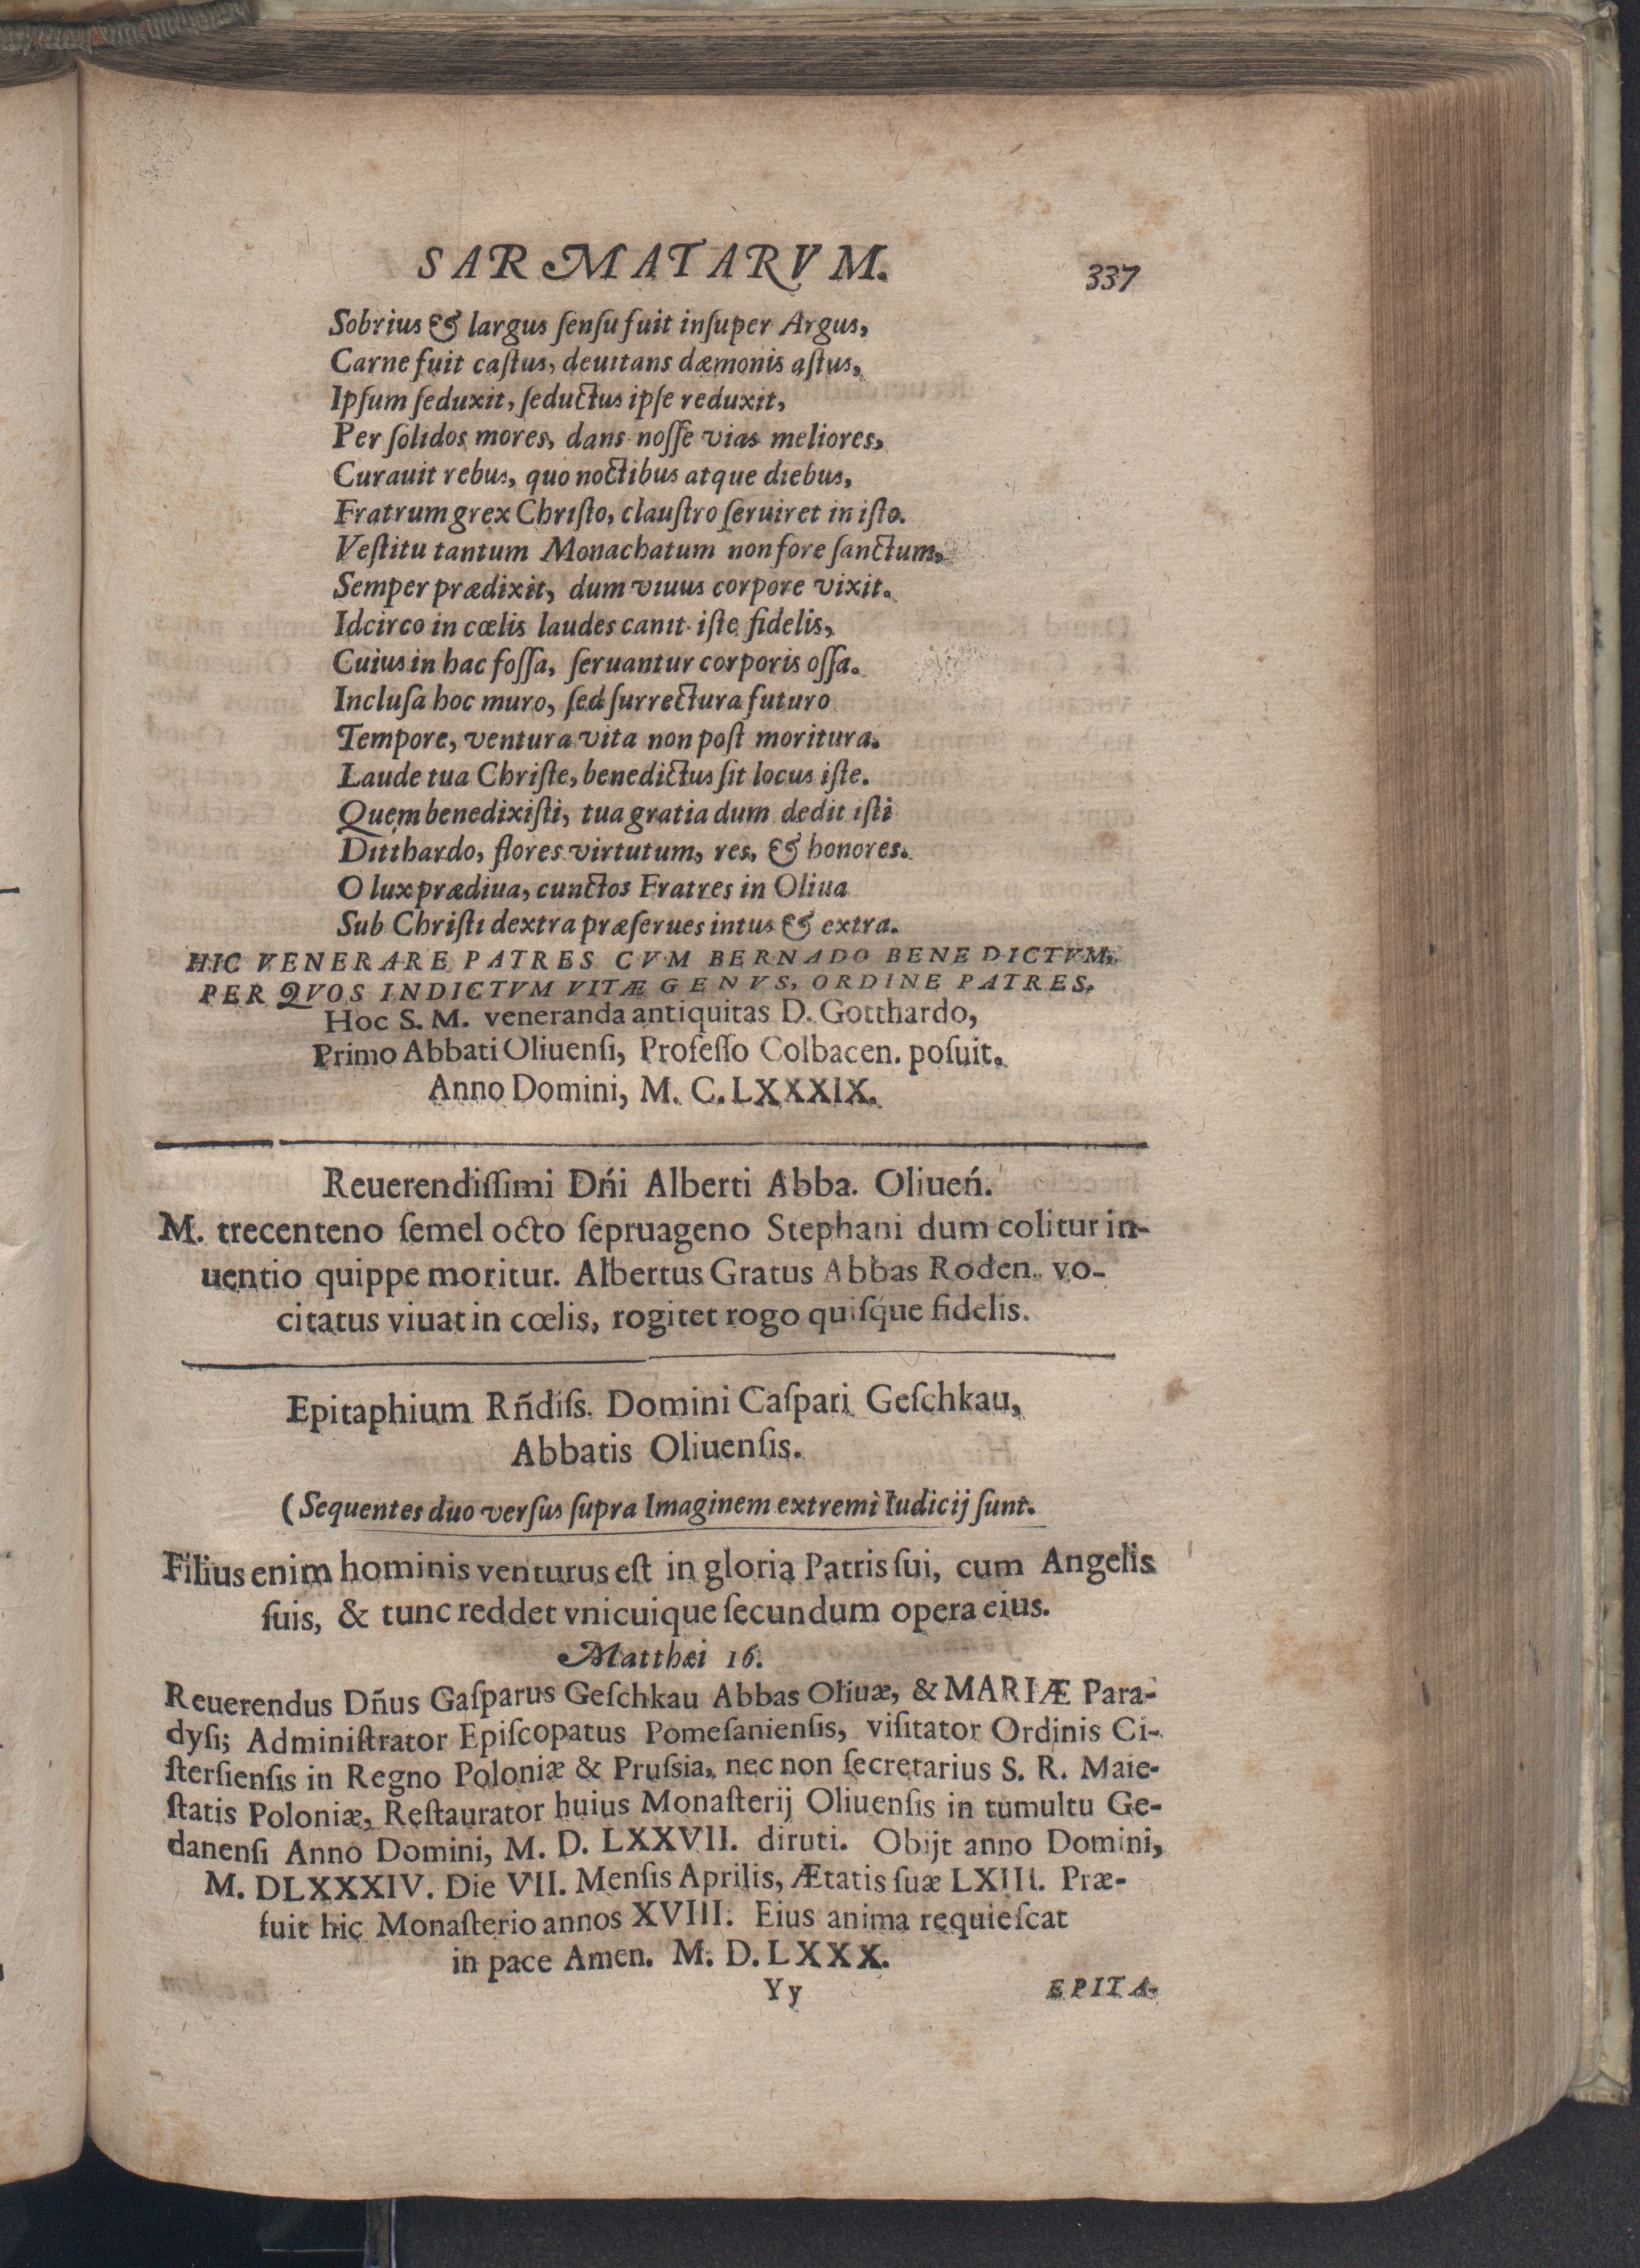 SARMATARVM. 337
Sobrius & largus ſenſu fuit inſuper Argus,
Carne fuit caſtus, deuitans dæmonis aſtus,
Ipſum ſeduxit, ſeductus ipſe reduxit,
Per ſolidos mores, dans noſſe vias meliores,
Curauit rebus, quo noctibus atque diebus,
Fratrum grex Chriſto, clauſtro ſeruiret in iſto.
Veſtitu tantum Monachatum non fore ſanctum,
Semper prædixit, dum viuus corpore vixit.
Idcirco in cœlis laudes canit iſte fidelis,
Cuius in hac foſſa, ſeruantur corporis oſſa.
Incluſa hoc muro, ſed ſurrectura futuro
Tempore, ventura vita non poſt moritura.
Laude tua Chriſte, benedictus ſit locus iſte.
Quem benedixiſti, tua gratia dum dedit iſti
Ditthardo, flores virtutum, res, & honores.
O lux prædiua, cunctos Fratres in Oliua
Sub Chriſti dextra præſerues intus & extra.
HIC VENERARE PATRES CVM BERNADO BENEDICTVM,
PER QVOS INDICTVM VITÆ GENVS, ORDINE PATRES.
Hoc S. M. veneranda antiquitas D. Gotthardo,
Primo Abbati Oliuenſi, Profeſſo Colbacen. poſuit.
Anno Domini, M. C. LXXXIX.
Reuerendiſſimi Dńi Alberti Abba. Oliueń.
M. trecenteno ſemel octo ſepruageno Stephani dum colitur in-
uentio quippe moritur. Albertus Gratus Abbas Roden. vo-
citatus viuat in cœlis, rogitet rogo quiſq́ue fidelis.
Epitaphium Rñdiſs. Domini Caſpari Geſchkau,
Abbatis Oliuenſis.
(Sequentes duo verſus ſupra Imaginem extremi Iudicij ſunt.
Filius enim hominis venturus eſt in gloria Patris ſui, cum Angelis
ſuis, & tunc reddet vnicuique ſecundum opera eius.
Matthæi 16.
Reuerendus Dñus Gaſparus Geſchkau Abbas Oliuæ, & MARIÆ Para-
dyſi; Adminiſtrator Epiſcopatus Pomeſanienſis, viſitator Ordinis Ci-
ſterſienſis in Regno Poloniæ & Pruſsia, nec non ſecretarius S. R. Maie-
ſtatis Poloniæ, Reſtaurator huius Monaſterij Oliuenſis in tumultu Ge-
danenſi Anno Domini, M. D. LXXVII. diruti. Obijt anno Domini,
M. DLXXXIV. Die VII. Menſis Aprilis, Ætatis ſuæ LXIII. Præ-
fuit hic Monaſterio annos XVIII. Eius anima requieſcat
in pace Amen. M. D. LXXX.
Yy EPITA-